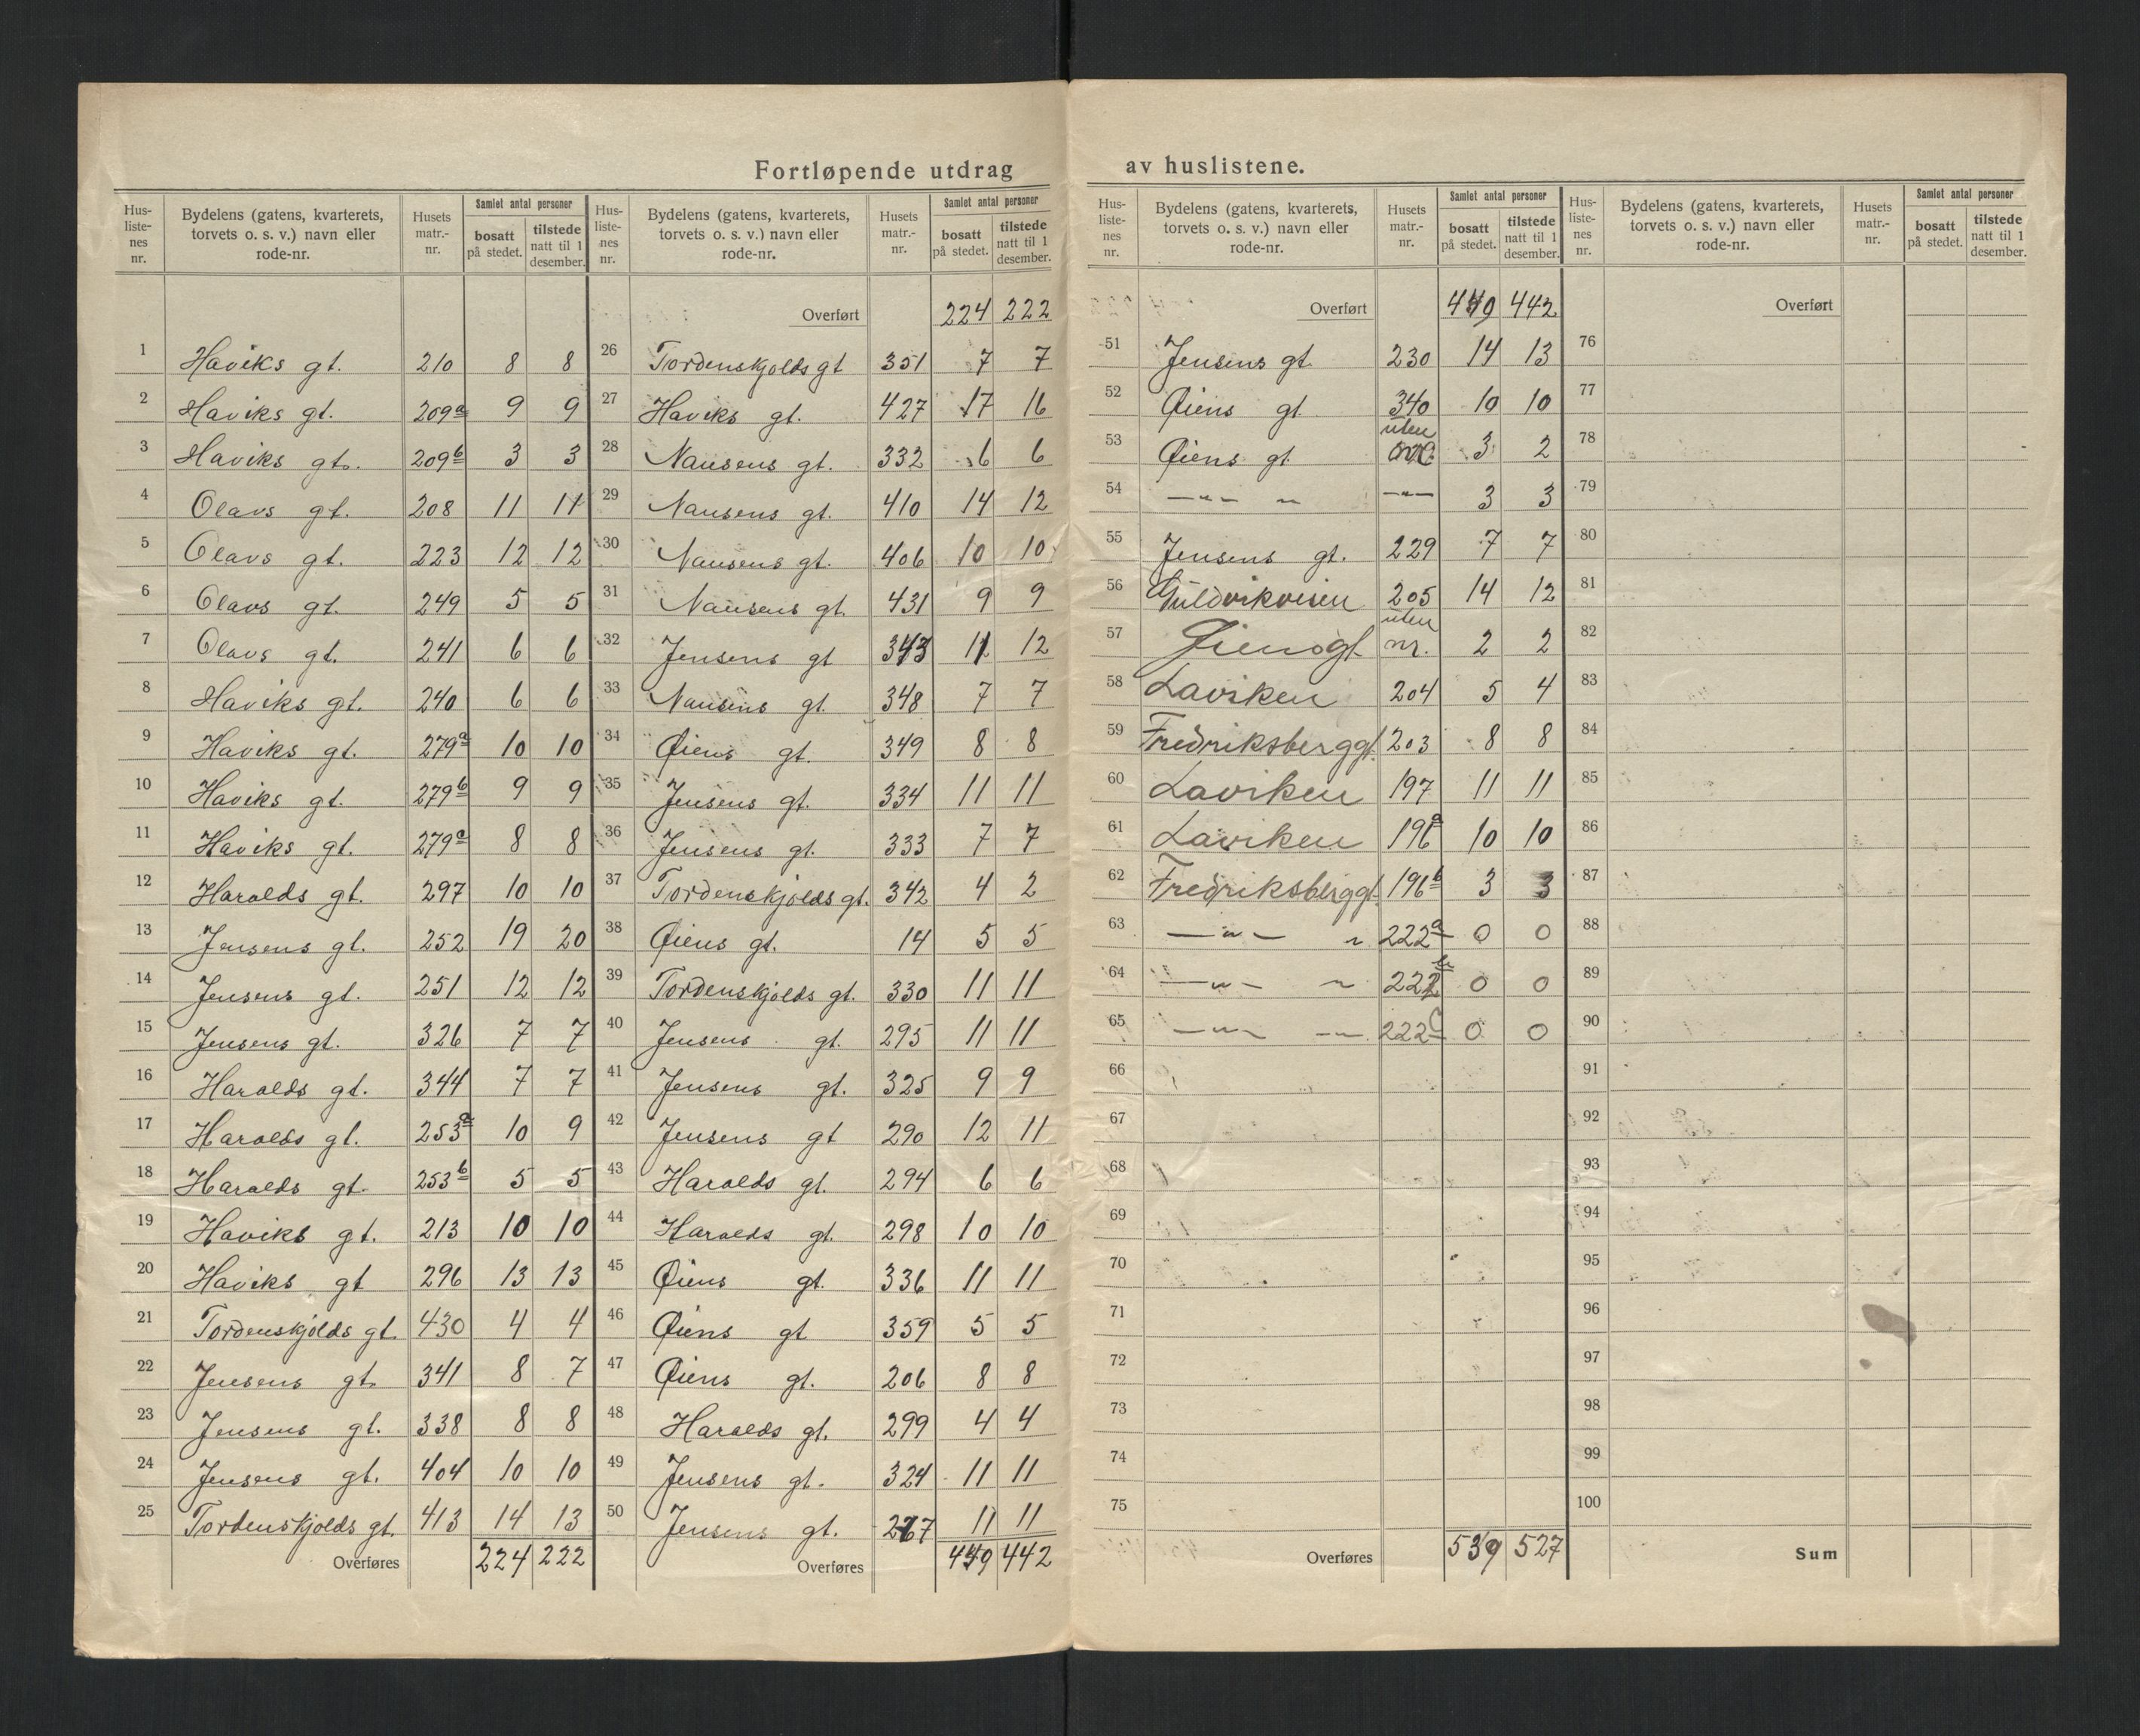 Fortløpende utdrag av huslistene.
Hus-listenes nr. Bydelens (gatens, kvarterets, torvets o. s. v.) navn eller rode-nr. Husets matr.-nr. Samlet antal personer bosatt på stedet. tilstede natt til 1 desember.
1 Haviks gt. 210 8 8
2 Haviks gt. 209a 9 9
3 Haviks gt. 209b 3 3
4 Olavs gt. 208 11 11
5 Olavs gt. 223 12 12
6 Olavs gt. 249 5 5
7 Olavs gt. 241 6 6
8 Haviks gt. 240 6 6
9 Haviks gt. 279a 10 10
10 Haviks gt. 279b 9 9
11 Haviks gt. 279c 8 8
12 Haralds gt. 297 10 10
13 Jensens gt. 252 19 20
14 Jensens gt. 251 12 12
15 Jensens gt. 326 7 7
16 Haralds gt. 344 7 7
17 Haralds gt. 253a 10 9
18 Haralds gt. 253b 5 5
19 Haviks gt. 213 10 10
20 Haviks gt 296 13 13
21 Tordenskjolds gt. 430 4 4
22 Jensens gt. 341 8 7
23 Jensens gt. 338 8 8
24 Jensens gt. 404 10 10
25 Tordenskjolds gt. 413 14 13
Overføres 224 222
Hus-listenes nr. Bydelens (gatens, kvarterets, torvets o. s. v.) navn eller rode-nr. Husets matr.-nr. Samlet antal personer bosatt på stedet. tilstede natt til 1 desember.
Overført 224 222
26 Tordenskjolds gt 351 7 7
27 Haviks gt. 427 17 16
28 Nansens gt. 332 6 6
29 Nansens gt. 410 14 12
30 Nansens gt. 406 10 10
31 Nansens gt. 431 9 9
32 Jensens gt 343 11 12
33 Nansens gt. 348 7 7
34 Øiens gt. 349 8 8
35 Jensens gt. 334 11 11
36 Jensens gt. 333 7 7
37 Tordenskjolds gt. 342 4 2
38 Øiens gt. 14 5 5
39 Tordenskjolds gt. 330 11 11
40 Jensens gt. 295 11 11
41 Jensens gt. 325 9 9
42 Jensens gt 290 12 11
43 Haralds gt. 294 6 6
44 Haralds gt. 298 10 10
45 Øiens gt. 336 11 11
46 Øiens gt 359 5 5
47 Øiens gt. 206 8 8
48 Haralds gt. 299 4 4
49 Jensens gt. 324 11 11
50 Jensens gt. 11 11
Overføres 449 442
Hus-listenes nr. Bydelens (gatens, kvarterets, torvets o. s. v.) navn eller rode-nr. Husets matr.-nr. Samlet antal personer bosatt på stedet. tilstede natt til 1 desember.
Overført 449 442
51 Jensens gt. 230 14 13
52 Øiens gt. 340 10 10
53 Øiens gt uten 3 2
54 —"— " —"— 3 3
55 Jensens gt. 229 7 7
56 Guldvikveien 205 14 12
57 Øiensgt uten nr. 2 2
58 Laviken 204 5 4
59 Fredriksberggt. 203 8 8
60 Laviken 197 11 11
61 Laviken 196a 10 10
62 Fredriksberggt. 196b 3 3
63 —"— " 222a 0 0
64 —"— " 222b 0 0
65 —"— —"— 222c 0 0
66
67
68
69
70
71
72
73
74
75
Overføres 539 527
Hus-listenes nr. Bydelens (gatens, kvarterets, torvets o. s. v.) navn eller rode-nr. Husets matr.-nr. Samlet antal personer bosatt på stedet. tilstede natt til 1 desember.
Overført
76
77
78
79
80
81
82
83
84
85
86
87
88
89
90
91
92
93
94
95
96
97
98
99
100
Sum